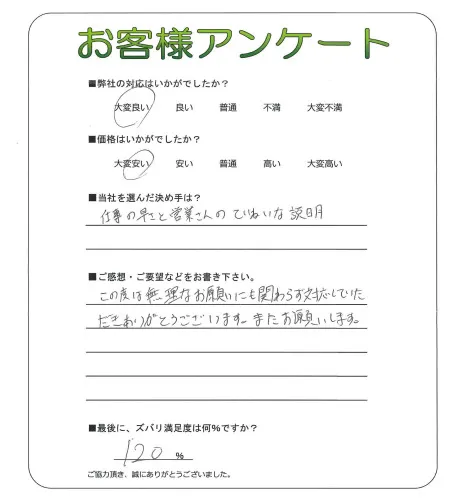 お客様アンケート
■弊社の対応はいかがでしたか？
大変良い 良い 普通 不満 大変不満
■価格はいかがでしたか？
大変安い 安い 普通 高い 大変高い
■当社を選んだ決め手は？
仕事の早さと営業さんのていねいな説明
■ご感想・ご要望などをお書き下さい。
この度は無理なお願いにも関わらず対応していた
だきありがとうございます。またお願いします。
■最後に、ズバリ満足度は何%ですか？
120 %
ご協力頂き、誠にありがとうございました。